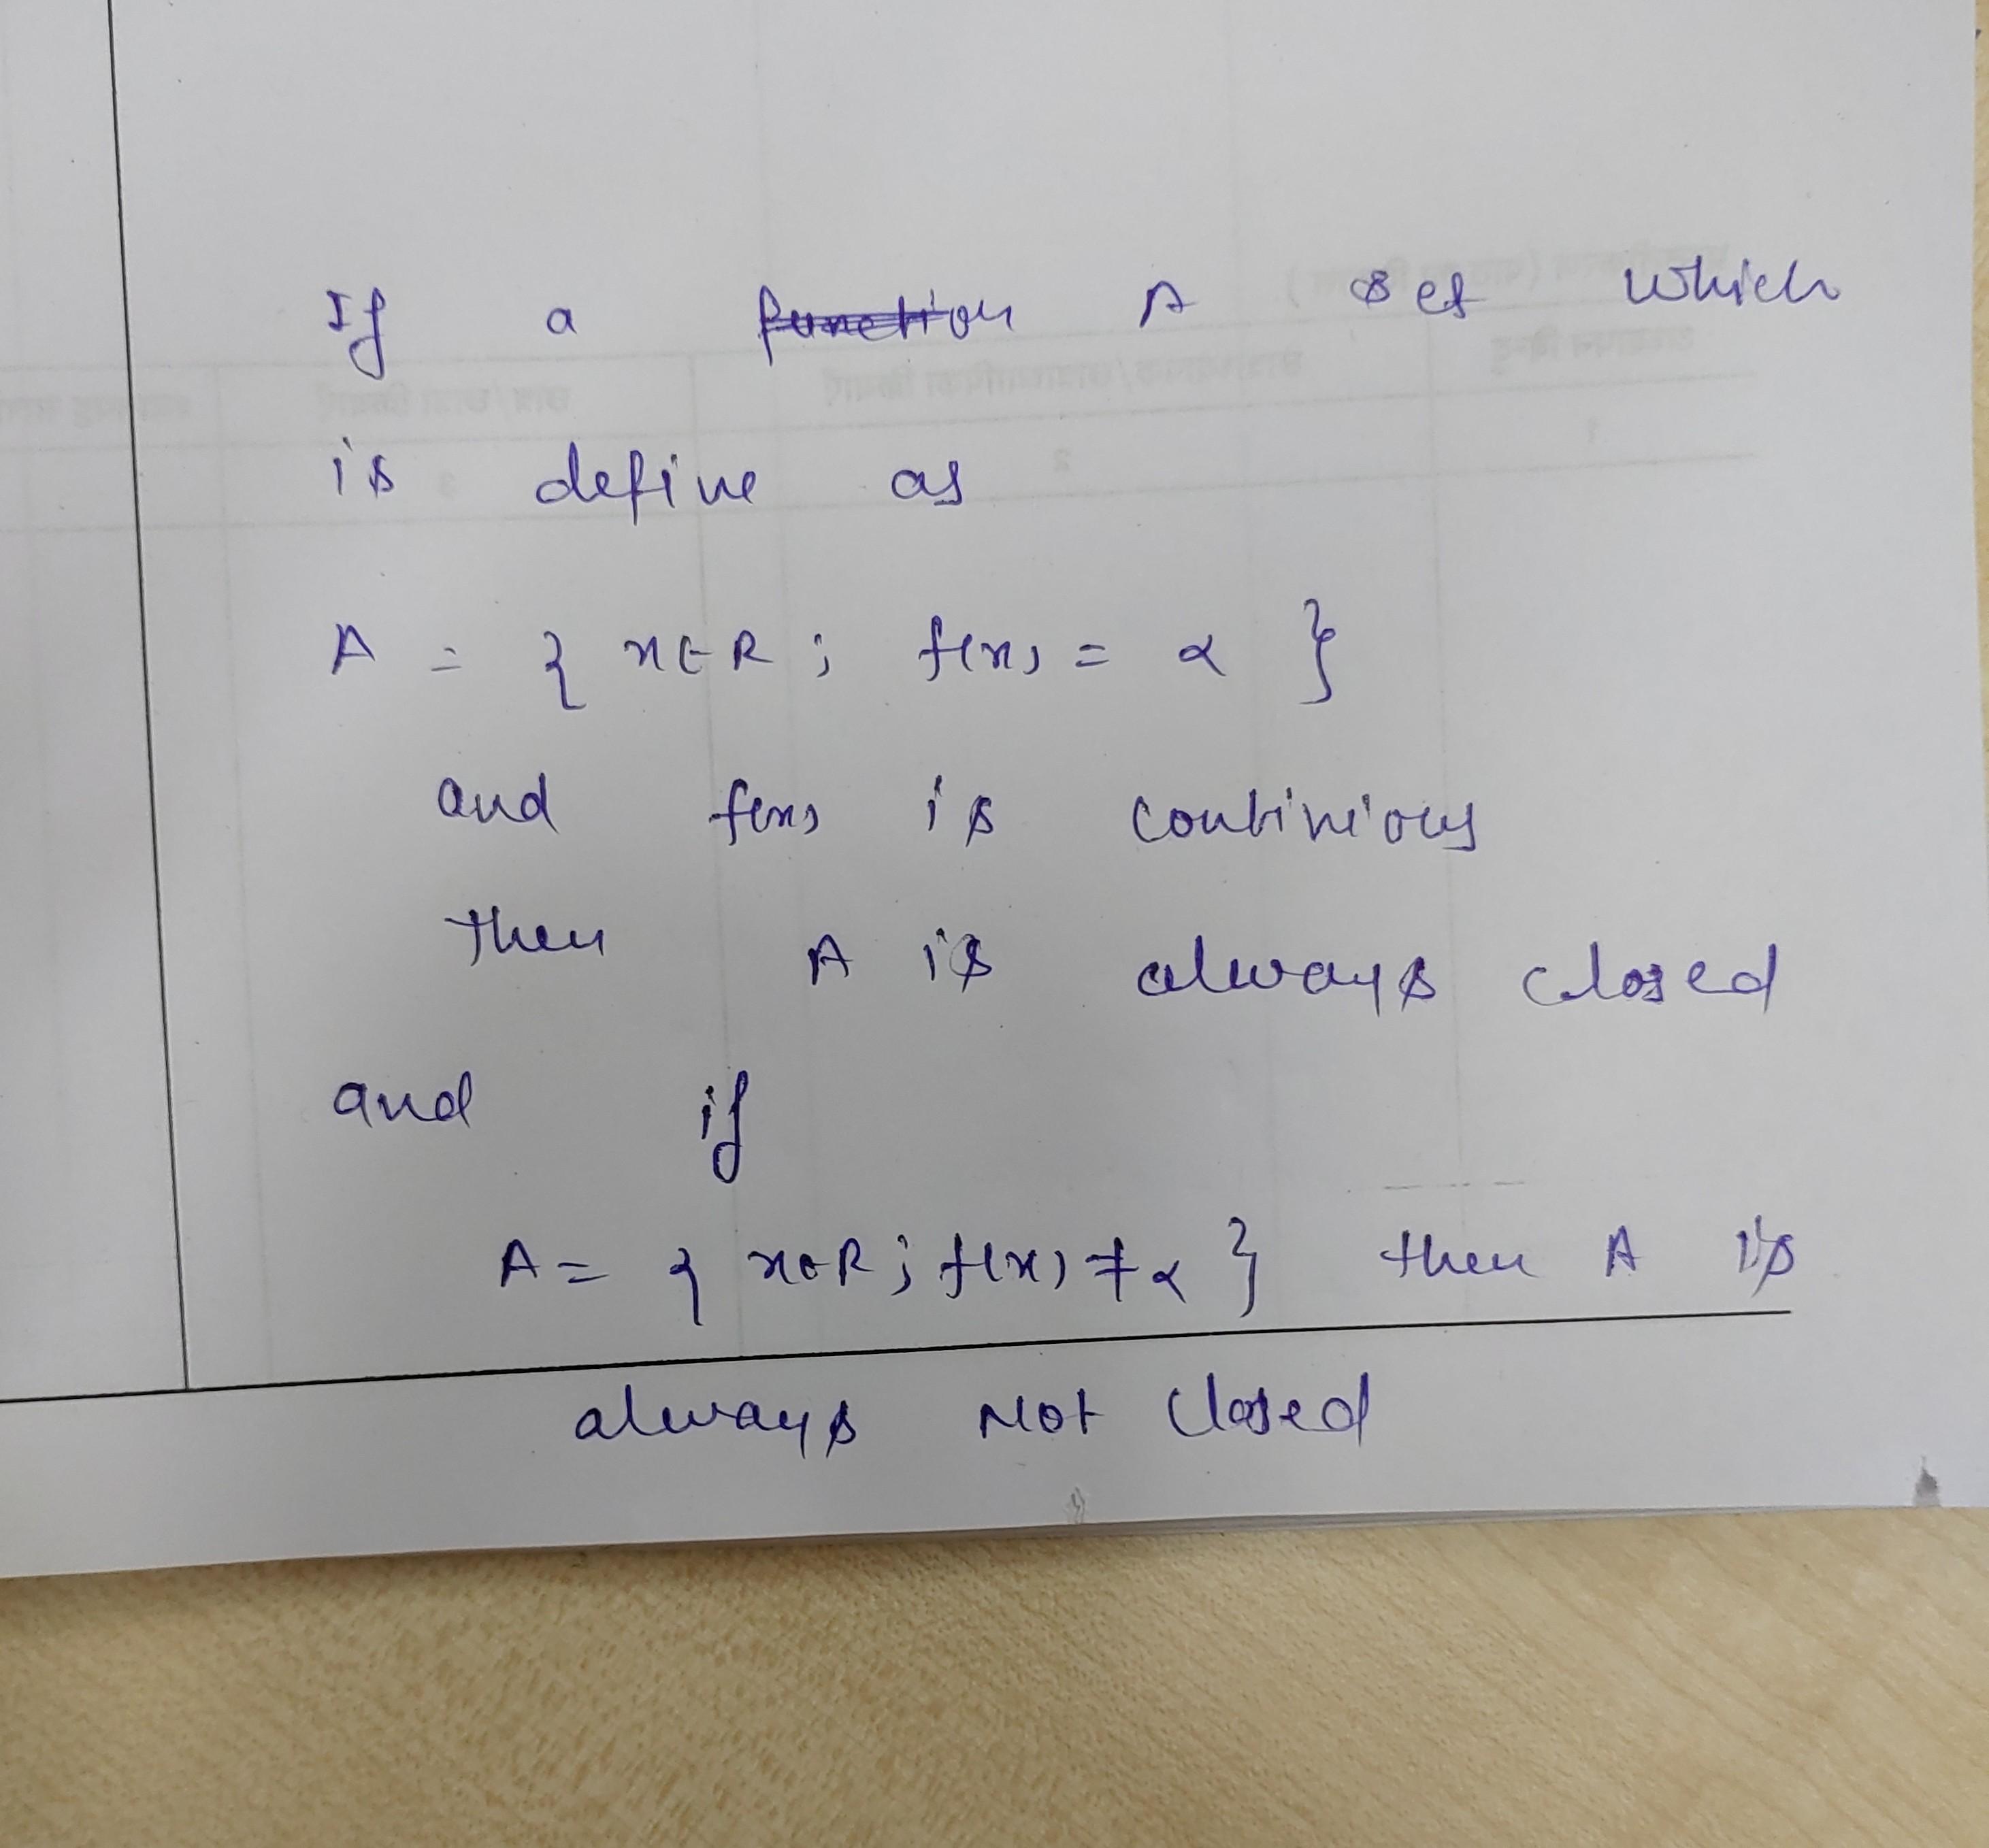 If a function A set which
is define as
A = { x∈R ; f(x) = α }
and f(x) is continious
then A is always closed
and if
A = { x∈R ; f(x) ≠ α } then A is
always Not Closed